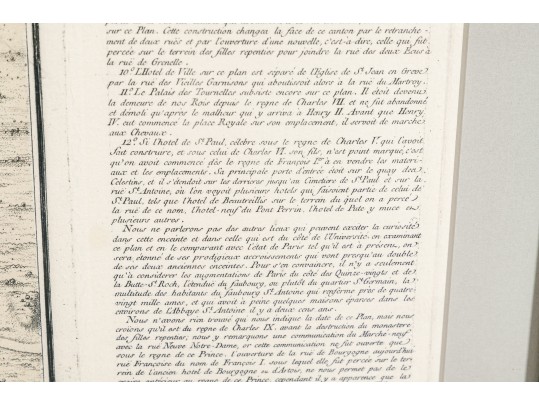 sur ce Plan. Cette construction changea la face de ce canton par le retranche-
ment de deux ruës et par l'ouverture d'une nouvelle, c'est-à dire, celle qui fut
percée sur le terrein des filles repenties pour joindre la ruë des deux Ecus à
la ruë de Grenelle.
10.° L'Hotel de Ville sur ce plan est séparé de l'Eglise de S.t Jean en Greve
par la ruë des Vieilles Garnisons qui aboutissoit alors à la ruë du Martroy.
11.° Le Palais des Tournelles subsiste encore sur ce plan. Il étoit devenu
la demeure de nos Rois depuis le regne de Charles VII. et ne fut abandonné
et démoli qu'après le malheur qui y arriva à Henry II. Avant que Henry
IV. eut commencé la place Royale sur son emplacement, il servoit de marché
aux Chevaux.
12.° Si l'hotel de S.t Paul, célebre sous le regne de Charles V. qui l'avoit
fait construire, et sous celui de Charles VI. son fils, n'est point marqué, c'est
qu'on avoit commencé dès le regne de François I.er à en vendre les materi-
aux et les emplacements. Sa principale porte d'entrée étoit sur le quay des
Celestins, et il s'étendoit sur les derrieres jusqu'au Cimetiere de S.t Paul et sur la
ruë S.t Antoine, où l'on voyoit plusieurs hotels qui faisoient partie de celui de
S.t Paul, tels que l'hotel de Beautreillis sur le terrein du quel on a percé
la ruë de ce nom, l'hotel-neuf du Pont Perrin, l'hotel de Pute y muce et
plusieurs autres.
Nous ne parlerons pas des autres lieux qui peuvent exciter la curiosité
dans cette enceinte et dans celle qui est du côté de l'Université, en examinant
ce plan et en le comparant avec l'état de Paris tel qu'il est à présent, on
sera étonné de ses prodigieux accroissements qui vont presqu'au double
de ses deux anciennes enceintes. Pour s'en convaincre, il n'y a seulement
qu'à considérer les augmentations de Paris du côté des Quinze-vingts et de
la Butte-S.t Roch, l'étendüe du faubourg, ou plutôt du quartier S.t Germain, la
multitude des habitants du faubourg S.t Antoine qui renferme près de quatre
vingt mille ames, et qui avoit à peine quelques maisons éparses dans les
environs de l'Abbaye S.t Antoine il y a deux cens ans.
Nous n'avons rien trouvé qui nous indique la date de ce Plan, mais nous
croions qu'il est du regne de Charles IX. avant la destruction du monastere
des filles repenties, nous y remarquons une communication du Marché-neuf
avec la ruë Neuve Nôtre-Dame, or cette communication ne fut ouverte que
sous le regne de ce Prince. L'ouverture de la ruë de Bourgogne aujourd'hui
ruë Françoise du nom de François I. sous lequel elle fut percée sur le ter-
rein de l'ancien hotel de Bourgogne ou d'Artois, ne nous permet pas de le
croire antérieur au regne de ce Prince, cependant il y a apparence que la